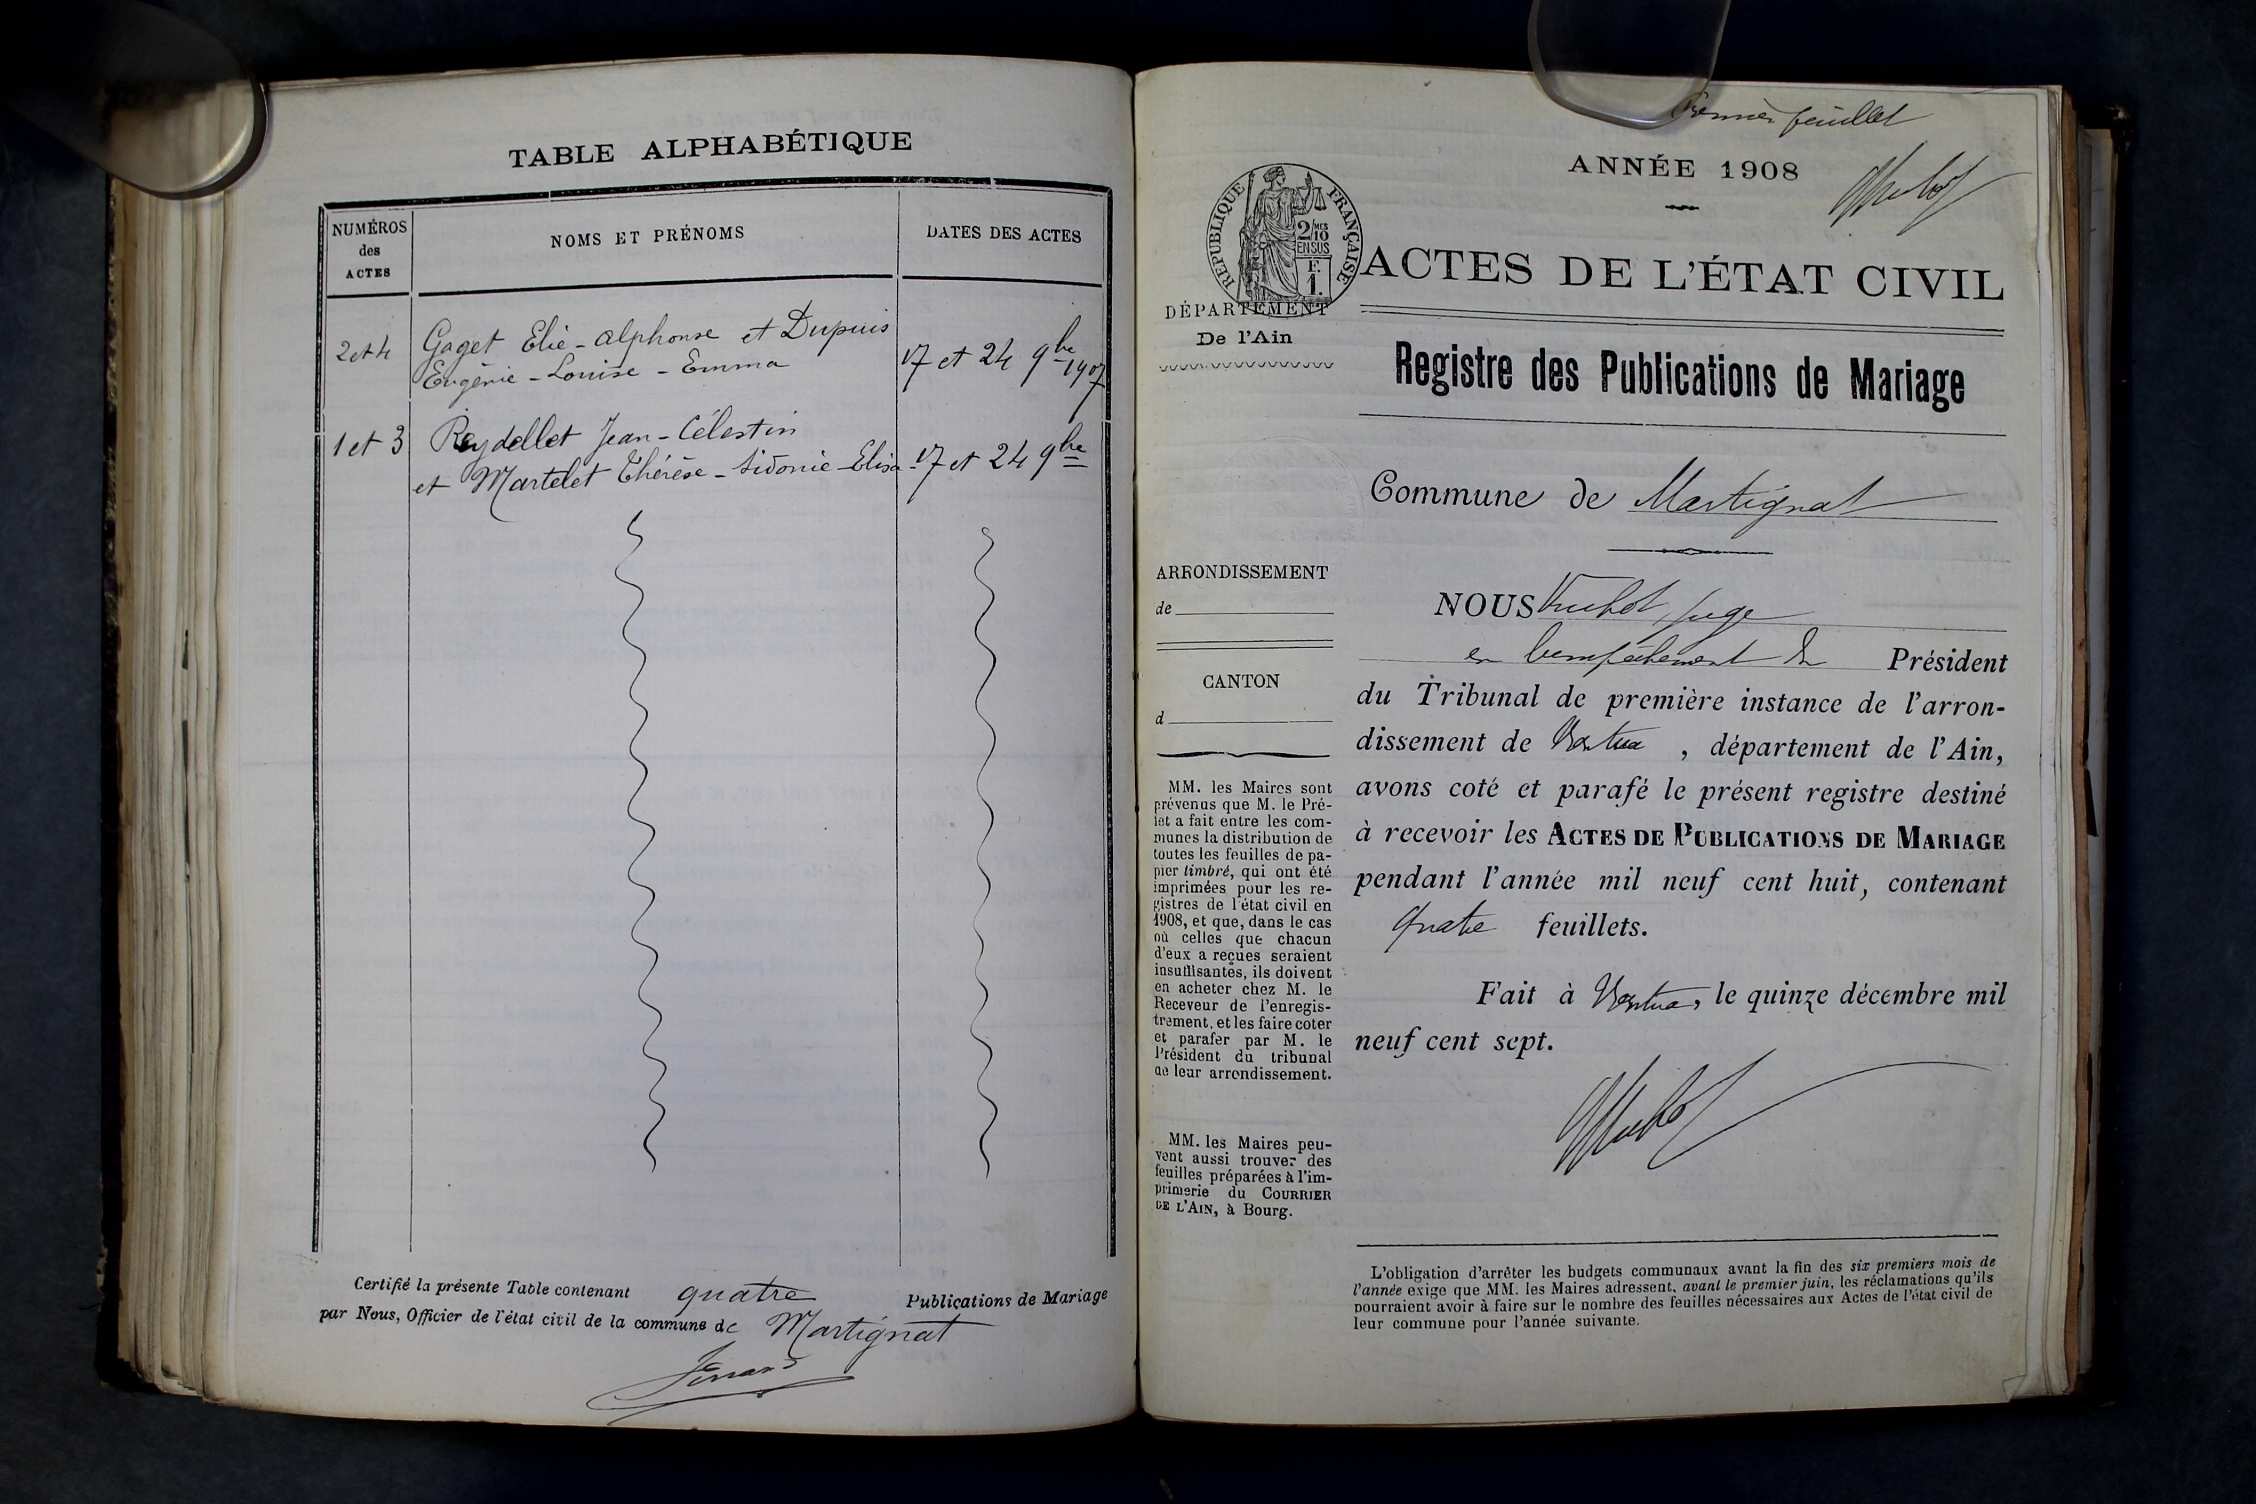 TABLE ALPHABÉTIQUE
NUMÉROS
des
ACTES
NOMS ET PRÉNOMS
DATES DES ACTES
2 et 4
Gaget Elie - Alphonse et Dupuis
Eugènie - Louise - Emma
17 et 24 9bre 1907
1 et 3
Reydellet Jean - Célestin
et Martelet Thérèse - Sidonie - Elisa
17 et 24 9bre
Certifié la présente Table contenant quatre Publications de Mariage
par Nous, Officier de l'état civil de la commune de Martignat
Premier feuillet
ANNÉE 1908
RÉPUBLIQUE FRANÇAISE
2/10 MES
EN SUS
F.
1.
ACTES DE L'ÉTAT CIVIL
DÉPARTEMENT
De l'Ain
Registre des Publications de Mariage
Commune de Martignat
ARRONDISSEMENT
de
CANTON
d
MM. les Maires sont
prévenus que M. le Pré-
fet a fait entre les com-
munes la distribution de
toutes les feuilles de pa-
pier timbré, qui ont été
imprimées pour les re-
gistres de l'état civil en
1908, et que, dans le cas
où celles que chacun
d'eux a reçues seraient
insuffisantes, ils doivent
en acheter chez M. le
Receveur de l'enregis-
trement, et les faire coter
et parafer par M. le
Président du tribunal
de leur arrondissement.
MM. les Maires peu-
vent aussi trouver des
feuilles préparées à l'im-
primerie du COURRIER
DE L'AIN, à Bourg.
NOUS juge
en l'empêchement du Président
du Tribunal de première instance de l'arron-
dissement de Nantua, département de l'Ain,
avons coté et parafé le présent registre destiné
à recevoir les ACTES DE PUBLICATIONS DE MARIAGE
pendant l'année mil neuf cent huit, contenant
quatre feuillets.
Fait à Nantua, le quinze décembre mil
neuf cent sept.
L'obligation d'arrêter les budgets communaux avant la fin des six premiers mois de
l'année exige que MM. les Maires adressent, avant le premier juin, les réclamations qu'ils
pourraient avoir à faire sur le nombre des feuilles nécessaires aux Actes de l'état civil de
leur commune pour l'année suivante.